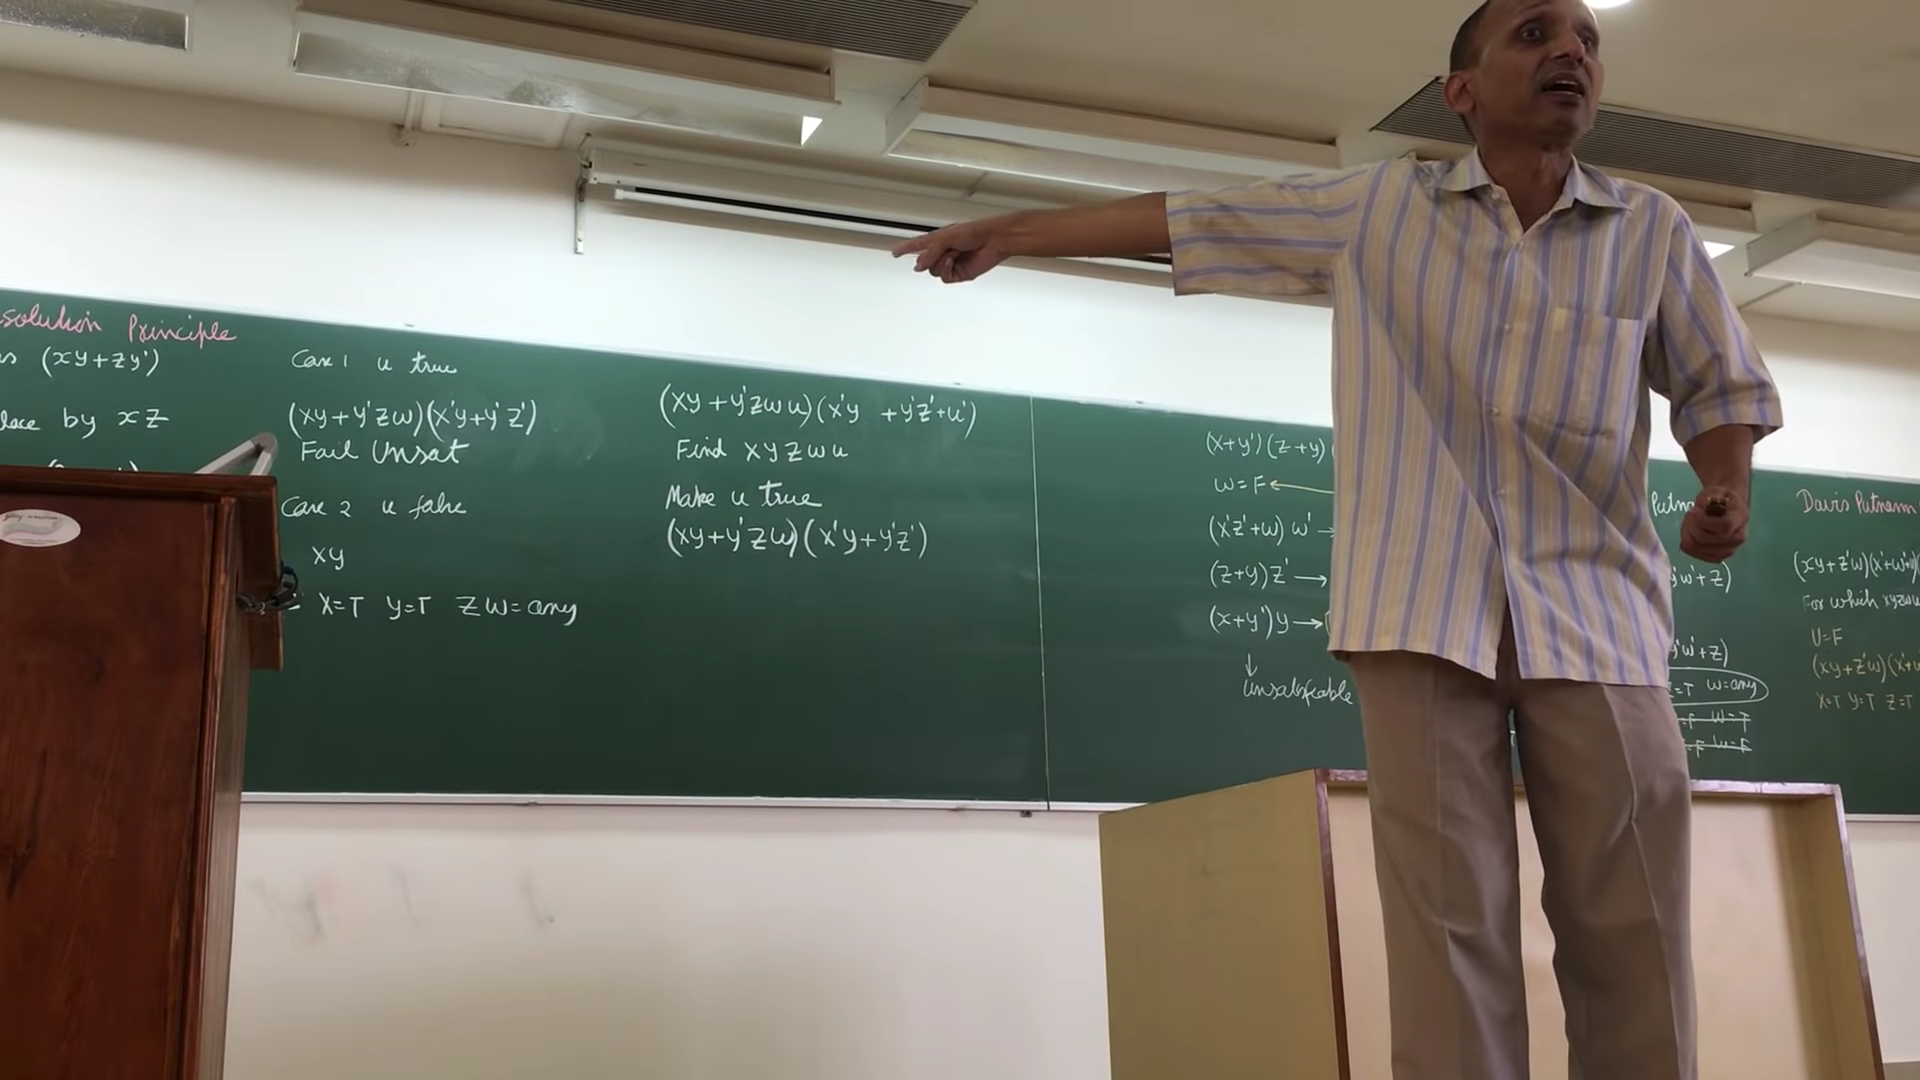 Principle
(xy+zy')
by xz
Case 1 u true
(xy+y'zw)(x'y+y'z')
Fail Unsat
Case 2 u false
xy
X=T Y=T Z W=any
(xy+y'zwu)(x'y +y'z'+u')
Find xyzwu
Make u true
(xy+y'zw)(x'y+y'z')
(x+y')(z+y)
w=F←
(x'z'+w) w'→
(z+y)z'→
(x+y')y→
↓
Unsatisfeable
w'+z)
y'w'+z)
=T W=any
=F W=T
=F W=F
Davis Putnamm
(xy+z'w)
For which xyzwu
U=F
(xy+z'w)
X=T Y=T Z=T